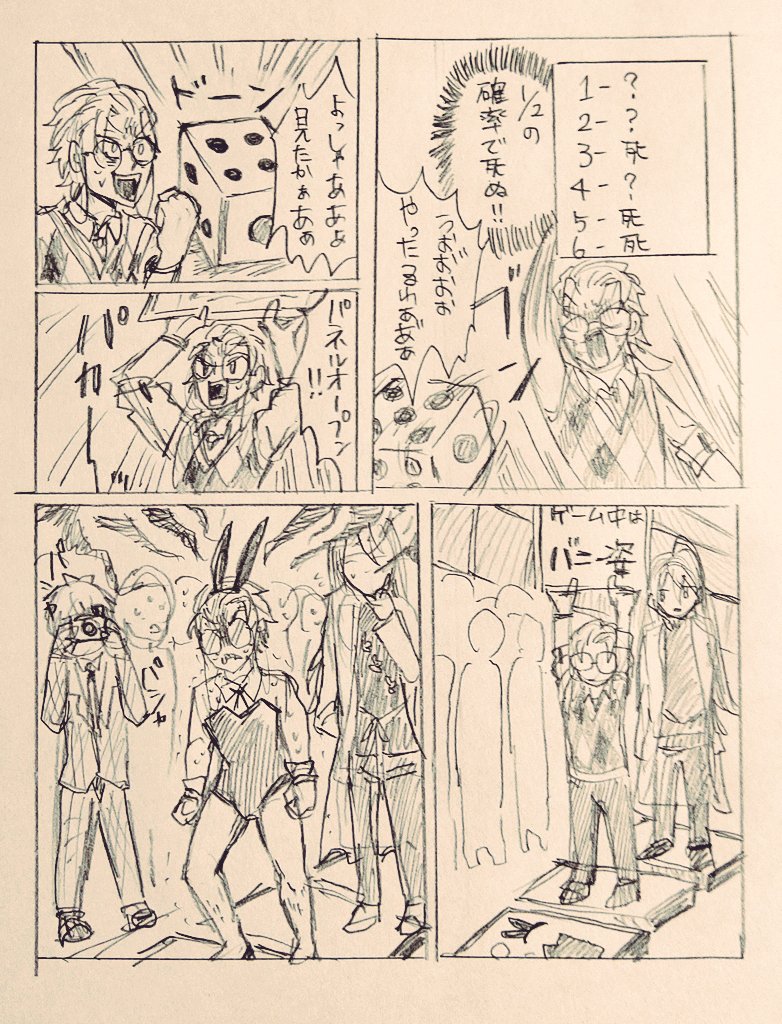 1-?
2-?
3-死
4-?
5-死
6-死
1/2の
確率で死ぬ!!
うおおおお
やったるらあああ
ブン
ドーン
よっしゃあああ
見たかぁあぁ
パネルオープン
!!
パカーッ
ゲーム中は
バニー姿
パシャ
パシャ